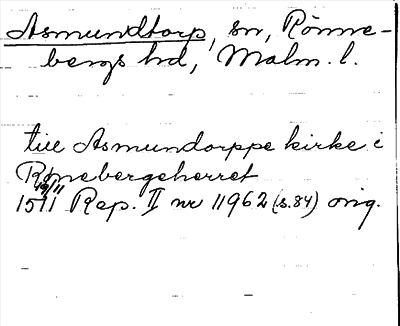 Asmundtorp, sn, Rönne-
bergs hd, Malm. l.
till Asmundorppe kirke i
Rönebergeherret
19/11
1511 Rep. II nr 11962 (s. 84) orig.